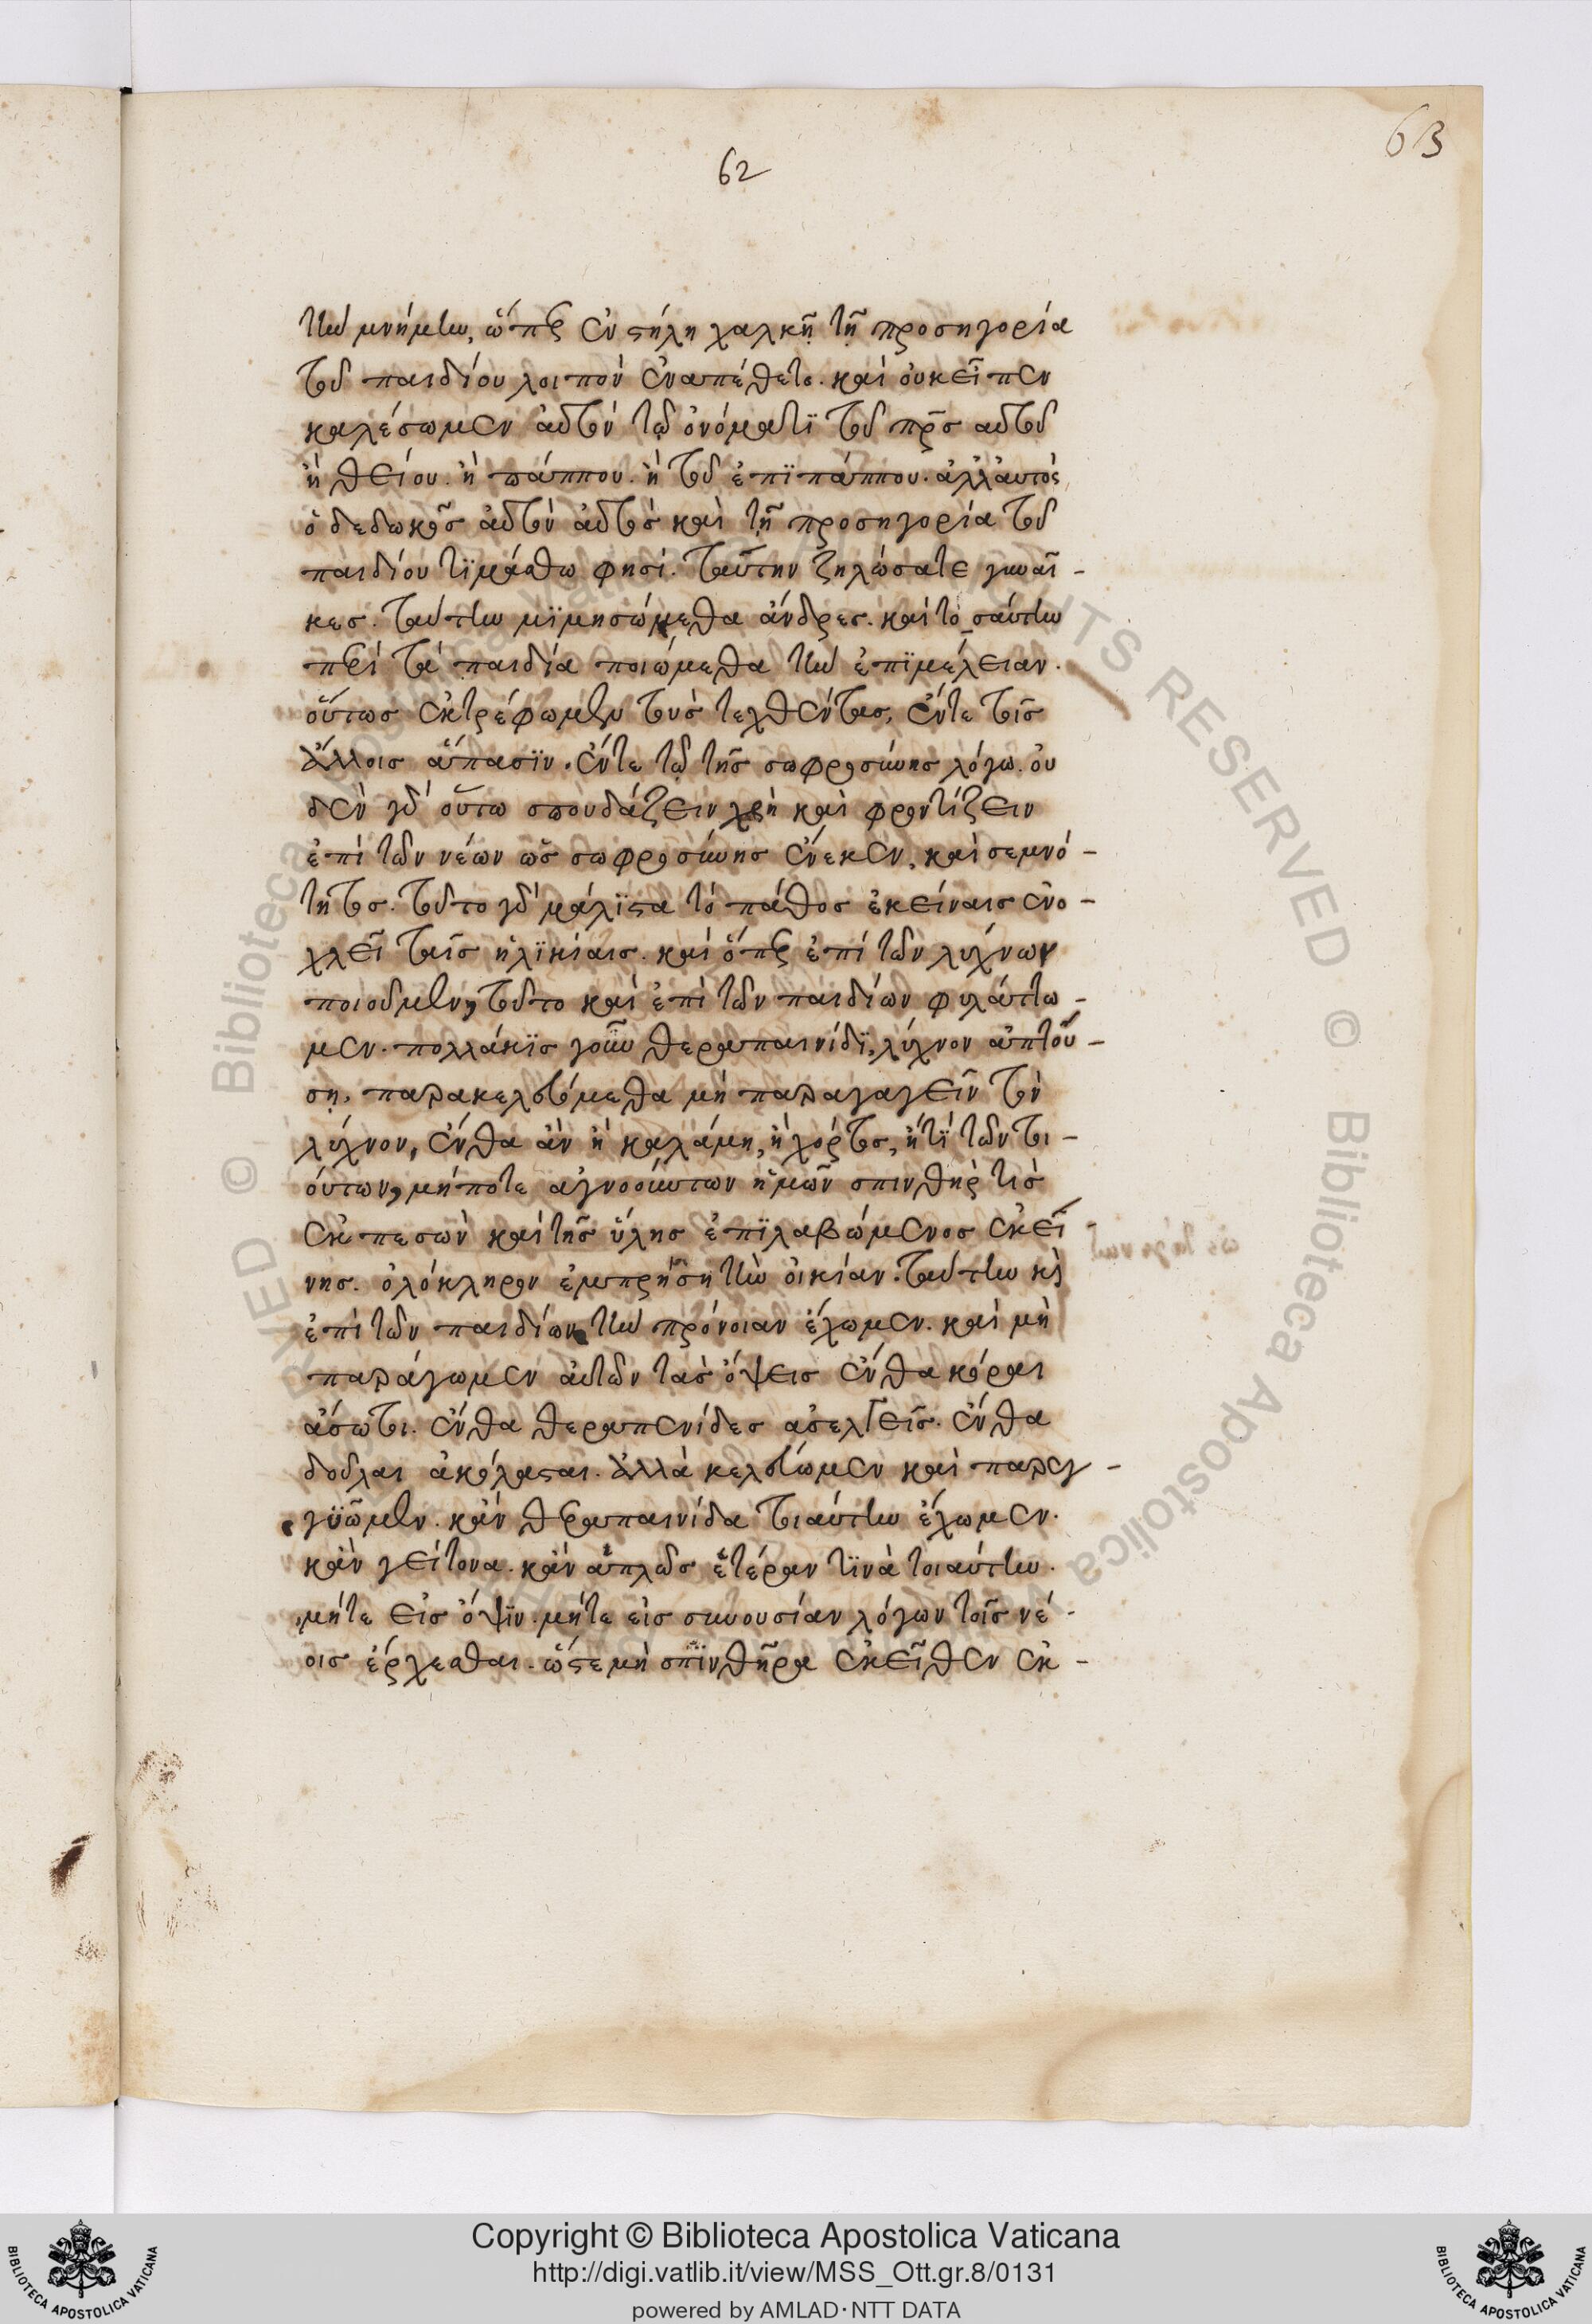 63
62
τὴν μνήμην, ὥσπερ ἐν στήλῃ χαλκῇ τῇ προσηγορία
τοῦ παιδίου λοιπὸν ἐναπέθετο. καὶ οὐκ εἶπεν
καλέσωμεν αὐτὸν τῷ ὀνόματϊ τοῦ πρς αὐτοῦ
ἢ θείου. ἢ πάππου. ἢ τοῦ ἐπϊπάππου. ἀλλ' αυτὸς
ὁ δεδωκὼς αὐτὸν αὐτὸς καὶ τῇ προσηγορία τοῦ
παιδίου τϊμάσθω φησί. ταῦτην ζηλώσατε γυναῖ-
κες. ταύτην μϊμησώμεθα ἄνδρες. καὶ το_σαύτην
περὶ τὰ παιδία ποιώμεθα τὴν ἐπϊμέλειαν.
οὕτως ἐκτρέφωμεν τοὺς τεχθέντας, ἔν τε τοῖς
ἄλλοις ἅπασϊν. ἔν τε τῷ τῆς σωφροσύνης λόγω. οὐ
δὲν γὰρ οὕτω σπουδάζειν χρὴ καὶ φροντίζειν
ἐπὶ τῶν νέων ὡς σωφροσύνης ἕνεκεν, καὶ σεμνό-
τητος. τοῦτο γὰρ μάλϊστα τὸ πάθος ἐκείναις ἐνο-
χλεῖ ταῖς ἡλϊκίαις. καὶ ὅπερ ἐπὶ τῶν λυχνων
ποιοῦμεν, τοῦτο καὶ ἐπὶ τῶν παιδίων φυλάττω-
μεν. πολλάκϊς γοῦν θεραπαινίδϊ, λύχνον ἁπτού-
σῃ, παρακελευόμεθα μὴ παραγαγεῖν τὸν
λύχνον, ἔνθα ἂν ἢ καλάμη, ἢ χόρτος, ἤ τϊ τῶν τοι-
ούτων, μήποτε ἀγνοούντων ἡμῶν σπινθήρ τὶς
ἐκπεσὼν καὶ τῆς ὕλης ἐπϊλαβώμενος ἐκεῖ-
νης. ὁλόκληρον ἐμπρήση τὴν οἰκίαν. ταύτην κὶ
ἐπὶ τῶν παιδίων τὴν πρόνοιαν ἔχωμεν. καὶ μὴ
παράγωμεν αὐτῶν τὰς ὄψεις ἔνθα κόραι
ἄσωτοι. ἔνθα θεραπενίδες ἀσελγεῖς. ἔνθα
δοῦλαι ἀκόλασται. ἀλλὰ κελεύωμεν καὶ παρεγ-
γϋῶμεν. κἂν θεραπαινίδα τοιαύτην ἔχωμεν.
κἂν γείτονα. κἂν ἁπλῶς ἑτέραν τϊνὰ τοιαύτην.
μήτε εἰς ὄψϊν. μήτε εἰς συνουσίαν λόγων τοῖς νέ-
οις ἔρχεσθαι. ὥστε μὴ σπϊνθῆρα ἐκεῖθεν ἐκ-
Copyright © Biblioteca Apostolica Vaticana
http://digi.vatlib.it/view/MSS_Ott.gr.8/0131
powered by AMLAD·NTT DATA